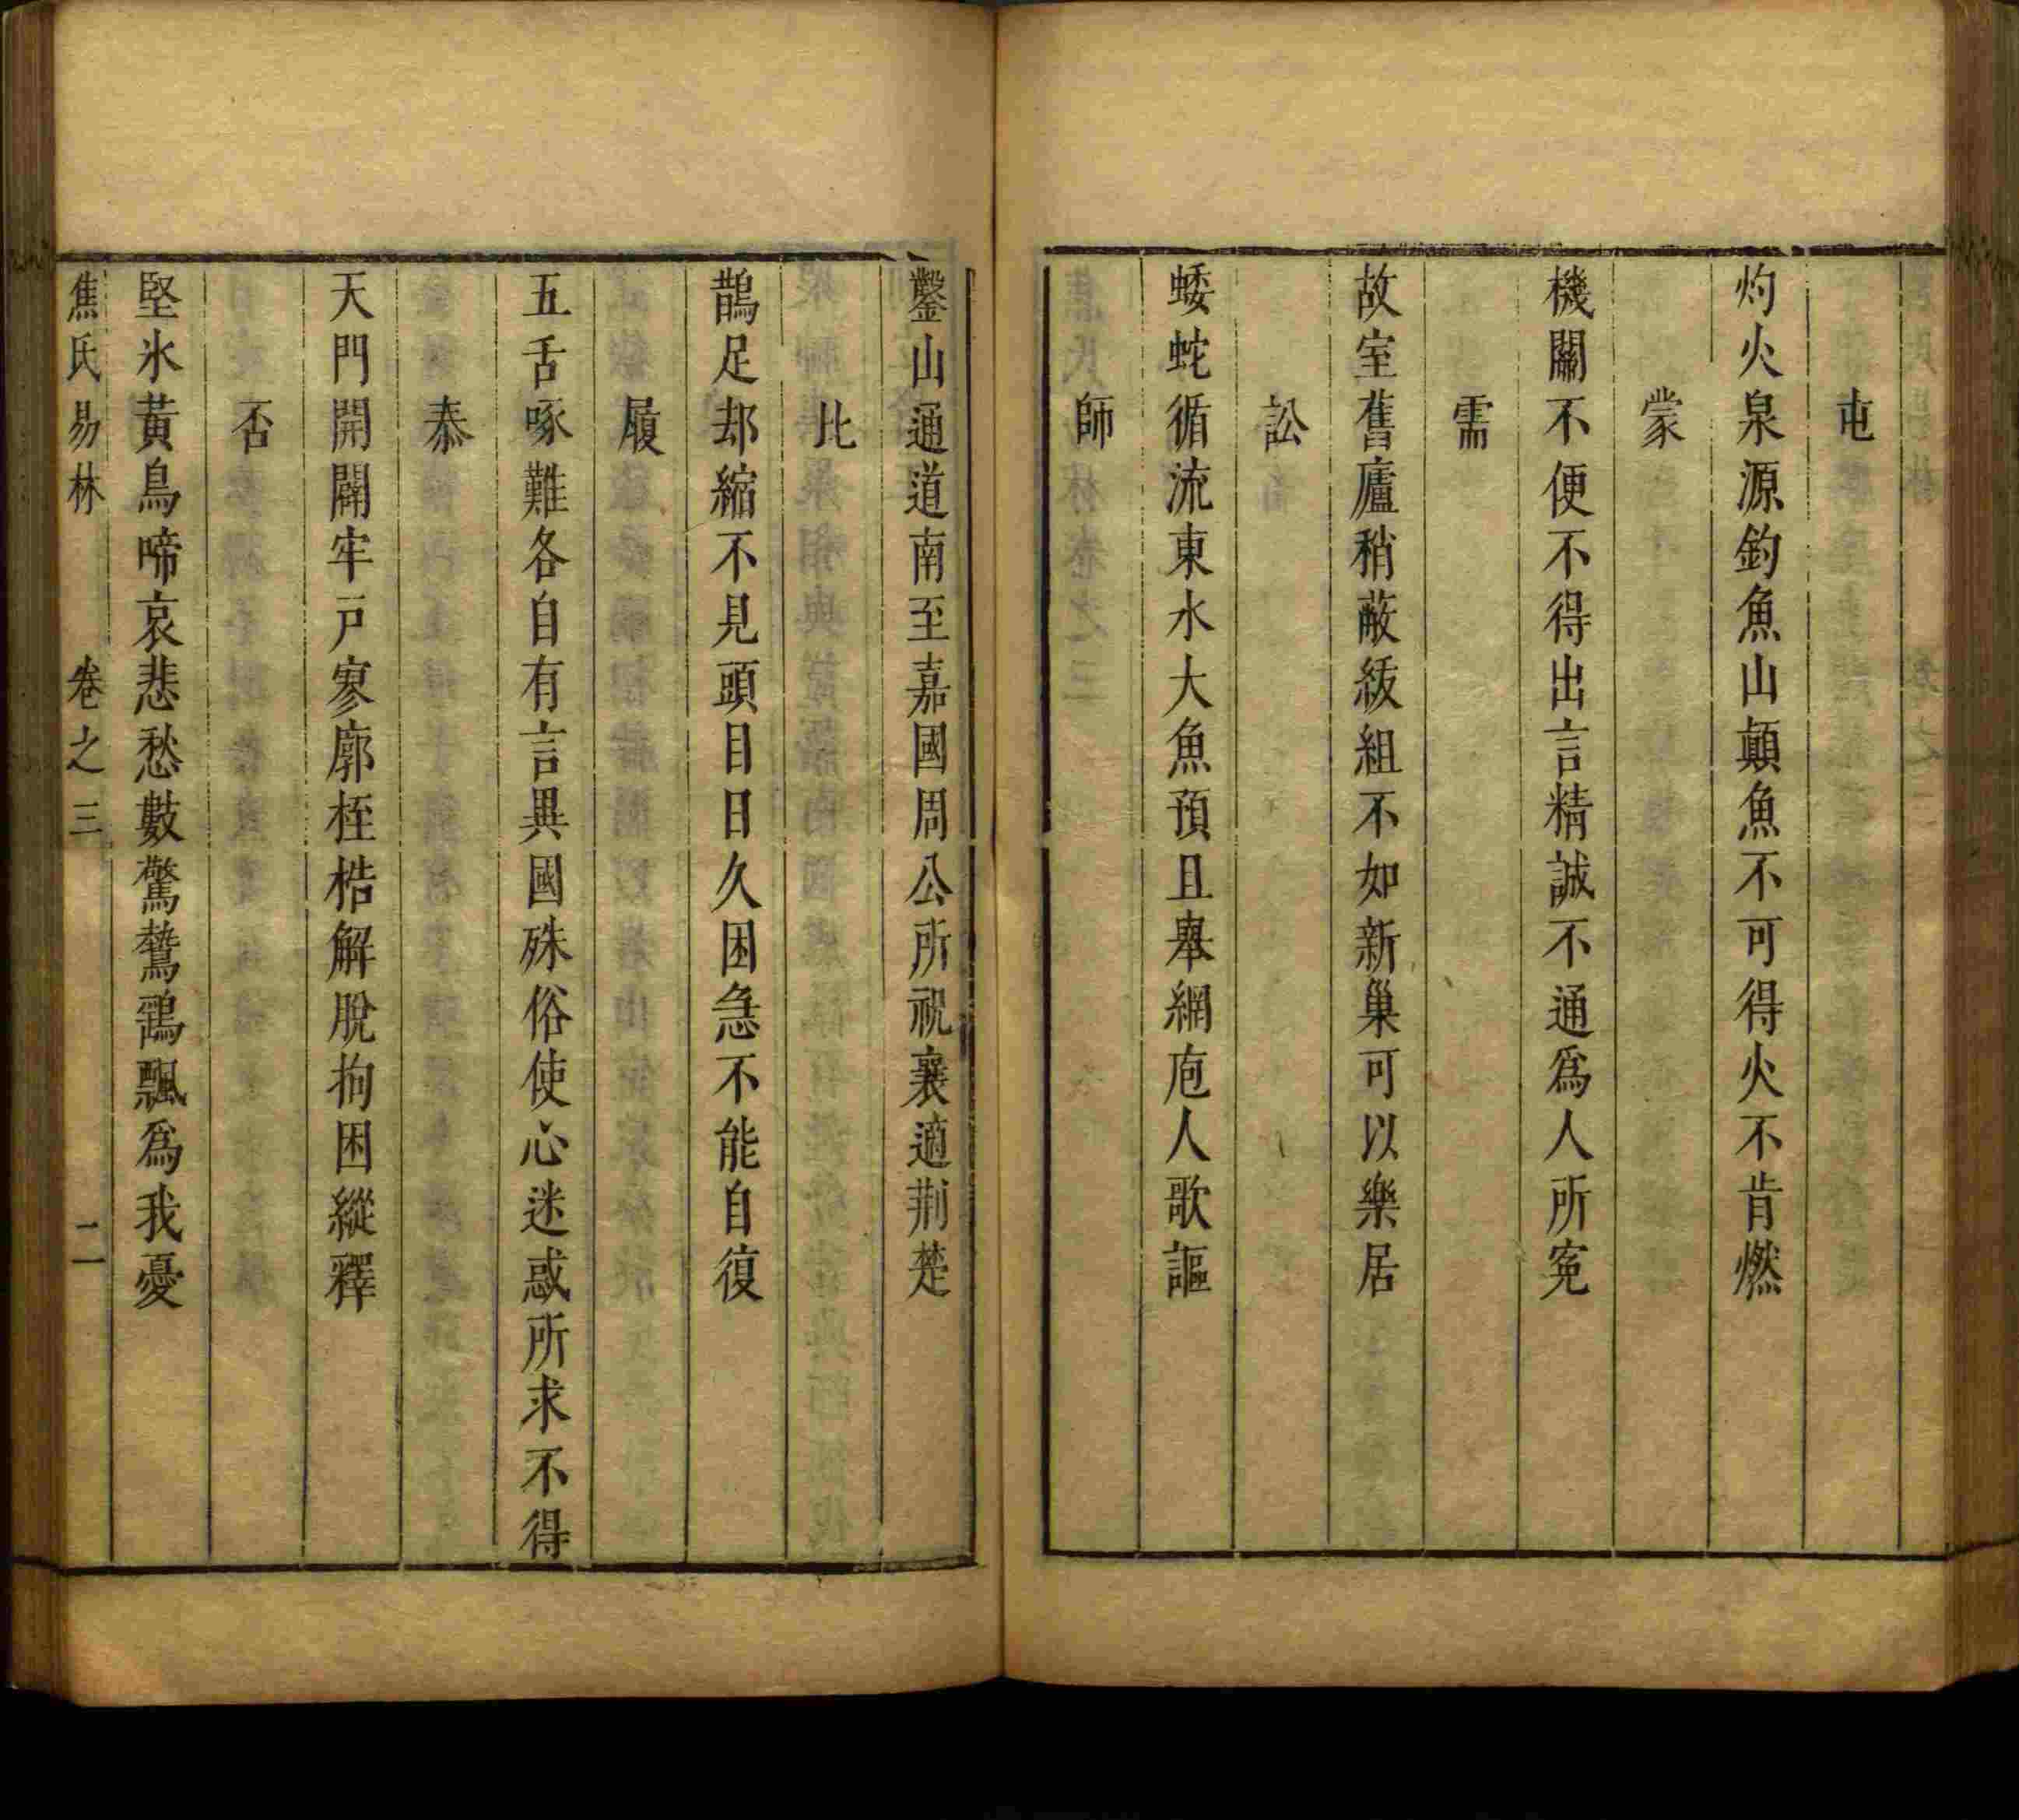 屯
灼火泉源釣魚山顛魚不可得火不肯燃
蒙
機關不便不得出言精誠不通爲人所寃
需
故室舊廬稍蔽紱組不如新巢可以樂居
訟
蜲蛇循流東水大魚預且舉網庖人歌謳
師
鑿山通道南至嘉國周公所祝襄適荆楚
比
鵲足却縮不見頭目日久困急不能自復
履
五舌啄難各自有言異國殊俗使心迷惑所求不得
泰
天門開闢牢戸寥廓桎梏解脫拘困縱釋
否
堅氷黃鳥啼哀悲愁數驚鷙鵶飄爲我憂
焦氏易林 卷之三 二